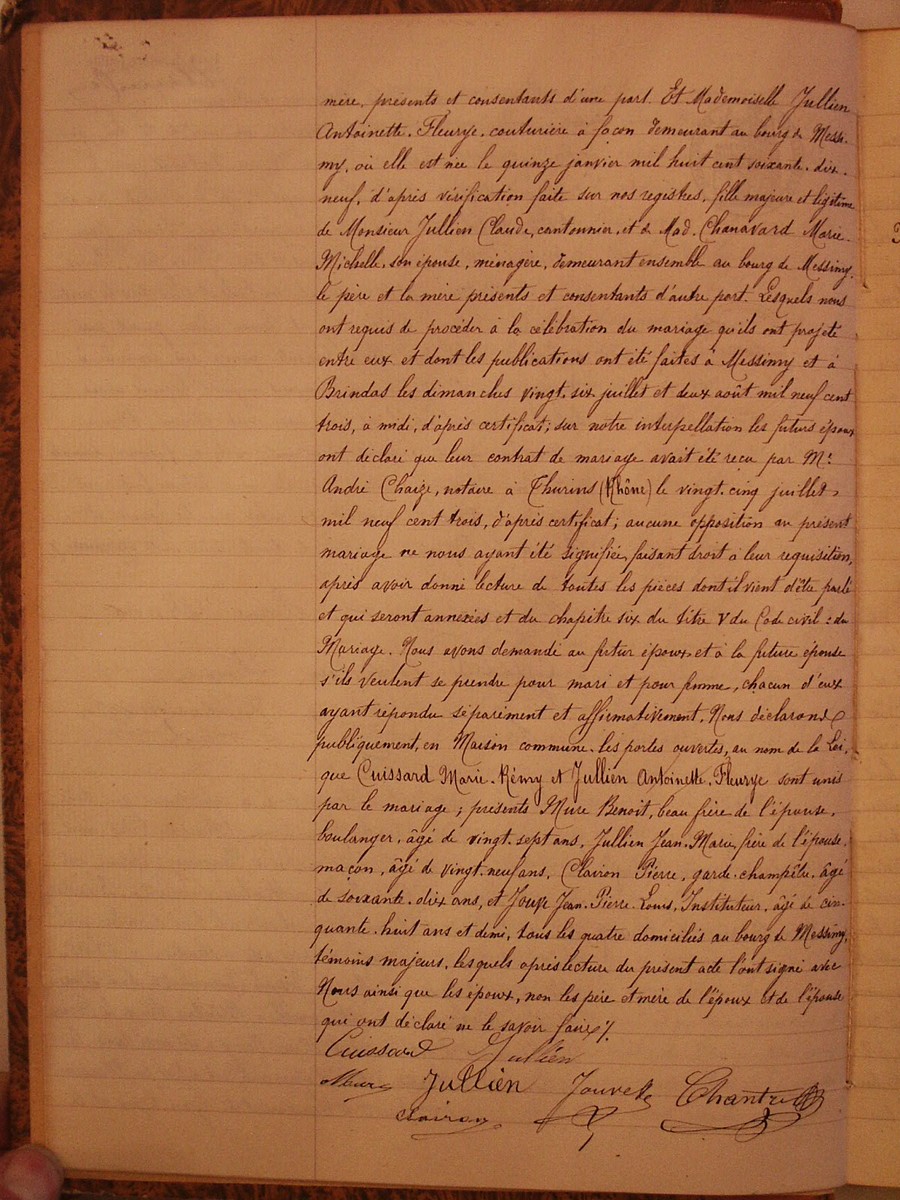 mère, présents et consentants d'une part. Et Mademoiselle Jullien
Antoinette-Fleurye, couturière à façon demeurant au bourg de Messi-
my, où elle est née le quinze janvier mil huit cent soixante-dix-
neuf, d'après vérification faite sur nos registres, fille majeure et légitime
de Monsieur Jullien Claude, cantonnier, et de Mad. Chanavard Marie-
Michelle, son épouse, ménagère, demeurant ensemble au bourg de Messimy,
le père et la mère présents et consentants d'autre part. Lesquels nous
ont requis de procéder à la célébration du mariage qu'ils ont projeté
entre eux et dont les publications ont été faites à Messimy et à
Brindas les dimanches vingt-six juillet et deux août mil neuf cent
trois, à midi, d'après certificat; sur notre interpellation les futurs époux
ont déclaré que leur contrat de mariage avait été reçu par Me
André Chaize, notaire à Thurins (Rhône) le vingt-cinq juillet
mil neuf cent trois, d'après certificat; aucune opposition au présent
mariage ne nous ayant été signifiée, faisant droit à leur requisition,
après avoir donné lecture de toutes les pièces dont il vient d'être parlé
et qui seront annexées et du chapitre six du titre V du Code civil: du
Mariage. Nous avons demandé au futur époux et à la future épouse
s'ils veulent se prendre pour mari et pour femme, chacun d'eux
ayant répondu séparément et affirmativement, Nous déclarons
publiquement, en Maison commune, les portes ouvertes, au nom de la Loi,
que Cuissard Marie-Rémy et Jullien Antoinette-Fleurye sont unis
par le mariage; présents Mure Benoit, beau frère de l'épouse,
boulanger, âgé de vingt-sept ans, Jullien Jean-Marie, frère de l'épouse,
maçon, âgé de vingt-neuf ans, Clairon Pierre, garde-champêtre, âgé
de soixante-dix ans, et Jouve Jean-Pierre-Louis, Instituteur, âgé de cin-
quante-huit ans et demi, tous les quatre domiciliés au bourg de Messimy,
témoins majeurs, lesquels après lecture du présent acte l'ont signé avec
Nous ainsi que les époux, non les père et mère de l'époux et de l'épouse
qui ont déclaré ne le savoir faire./.
Cuissard Jullien
Mure Jullien Jouve Chantre
Clairon